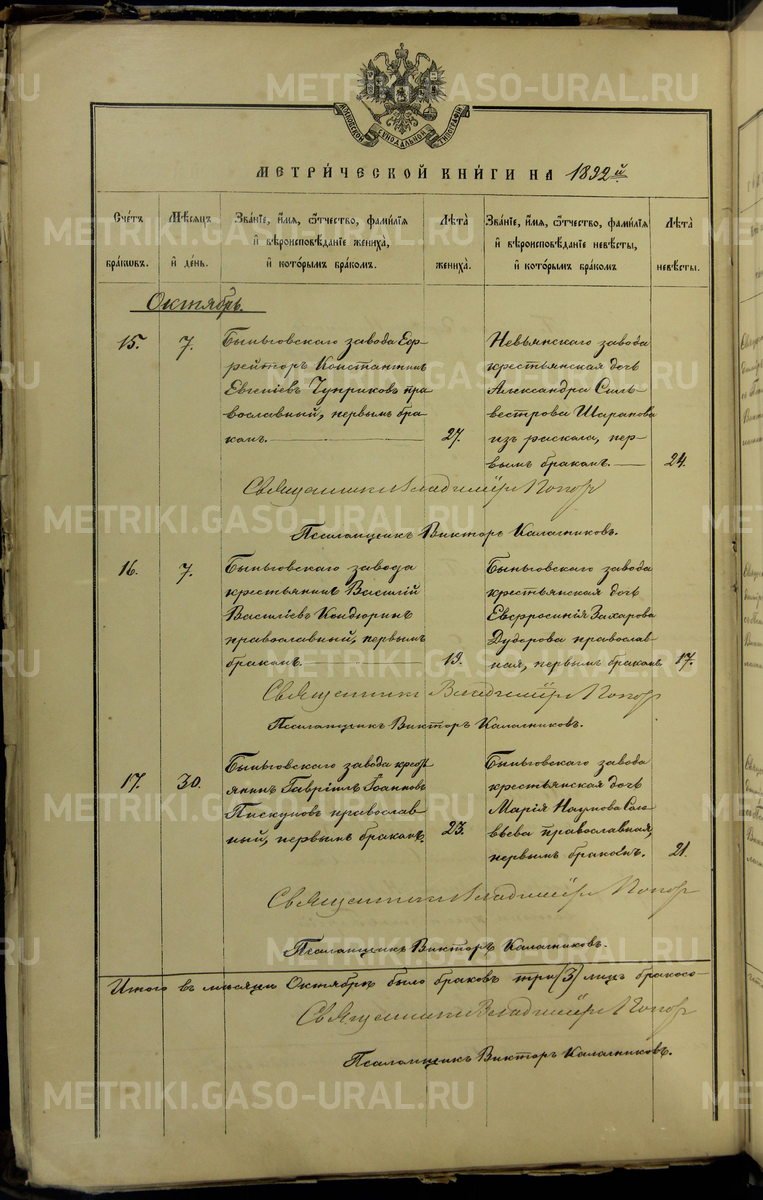 МОСКОВСКОЙ СУНОДАЛЬНОЙ ТИПОГРАФIИ
МЕТРИ́ЧЕСКОЙ КНИ́ГИ НА 1892й.
Сче́тъ бра́кѡвъ.
Мѣ́сѧцъ и҆ де́нь.
Зва́нїе, и҆́мѧ, ѻ҆́тчество, фами́лїѧ
и҆ вѣроисповѣ́данїе жениха̀,
и҆ кото́рымъ бра́комъ.
Лѣ́та жениха̀.
Зва́нїе, и҆́мѧ, ѻ҆́тчество, фами́лїѧ
и҆ вѣроисповѣ́данїе невѣ́сты,
и҆ кото́рымъ бра́комъ
Лѣ́та невѣ́сты.
Октябрь.
15. 7.
Быньговскаго завода Еф-
рейторъ Константинъ
Евгеніевъ Чуприковъ пра-
вославный, первымъ бра-
комъ.
27.
Невьянскаго завода
крестьянская дочь
Александра Силь-
вестрова Шарапова
изъ раскола, пер-
вымъ бракомъ.
24.
Священникъ Владимiръ Поповъ
Псаломщикъ Викторъ Калачниковъ.
16. 7.
Быньговскаго завода
крестьянинъ Василій
Василіевъ Кондюринъ
православный, первымъ
бракомъ.
19.
Быньговскаго завода
крестьянская дочь
Евфросинія Захарова
Дудорова православ-
ная, первымъ бракомъ
17.
Священникъ Владимiръ Поповъ
Псаломщикъ Викторъ Калачниковъ.
17. 30.
Быньговскаго завода крест
янинъ Гавріилъ Іоанновъ
Пискуновъ православ-
ный, первымъ бракомъ.
23.
Быньговскаго завода
крестьянская дочь
Марія Наумова Соло-
вьева православная,
первымъ бракомъ.
21.
Священникъ Владимiръ Поповъ
Псаломщикъ Викторъ Калачниковъ.
Итого въ мѣсяцѣ Октябрѣ было браковъ три (3) лицъ бракосо-
Священникъ Владимiръ Поповъ
Псаломщикъ Викторъ Калачниковъ.
METRIKI.GASO-URAL.RU